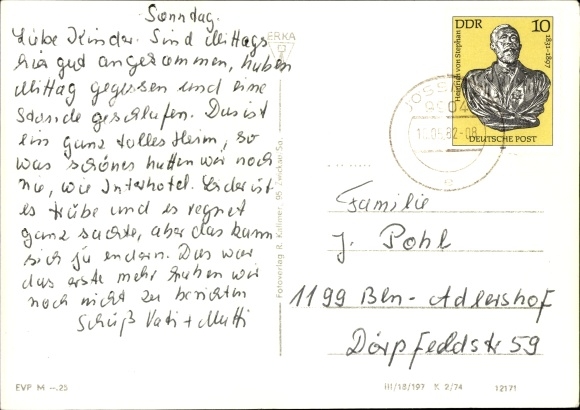 Sonntag.
Liebe Kinder. Sind Mittags
hier gut angekommen, haben
Mittag gegessen und eine
Stunde geschlafen. Das ist
ein ganz tolles Heim, so
was schönes hatten wir noch
nie, wie Interhotel. Leider ist
es trübe und es regnet
ganz sachte, aber das kann
sich ja ändern. Das war
das erste mehr haben wir
noch nicht zu berichten
Vati + Mutti
ERKA
Fotoverlag R. Kallmer, 95 Zwickau Sa.
DDR 10
Heinrich von Stephan
1831-1897
DEUTSCHE POST
9804
.04.82-08
Familie
J. Pohl
1199 Bln-Adlershof
Dörpfeldstr 59
EVP M -.25
III/18/197 K 2/74 12171